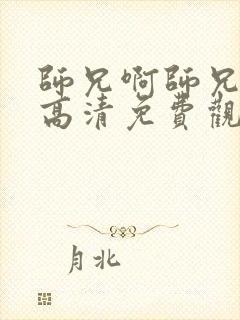 師兄啊師兄
高清免費觀
月北